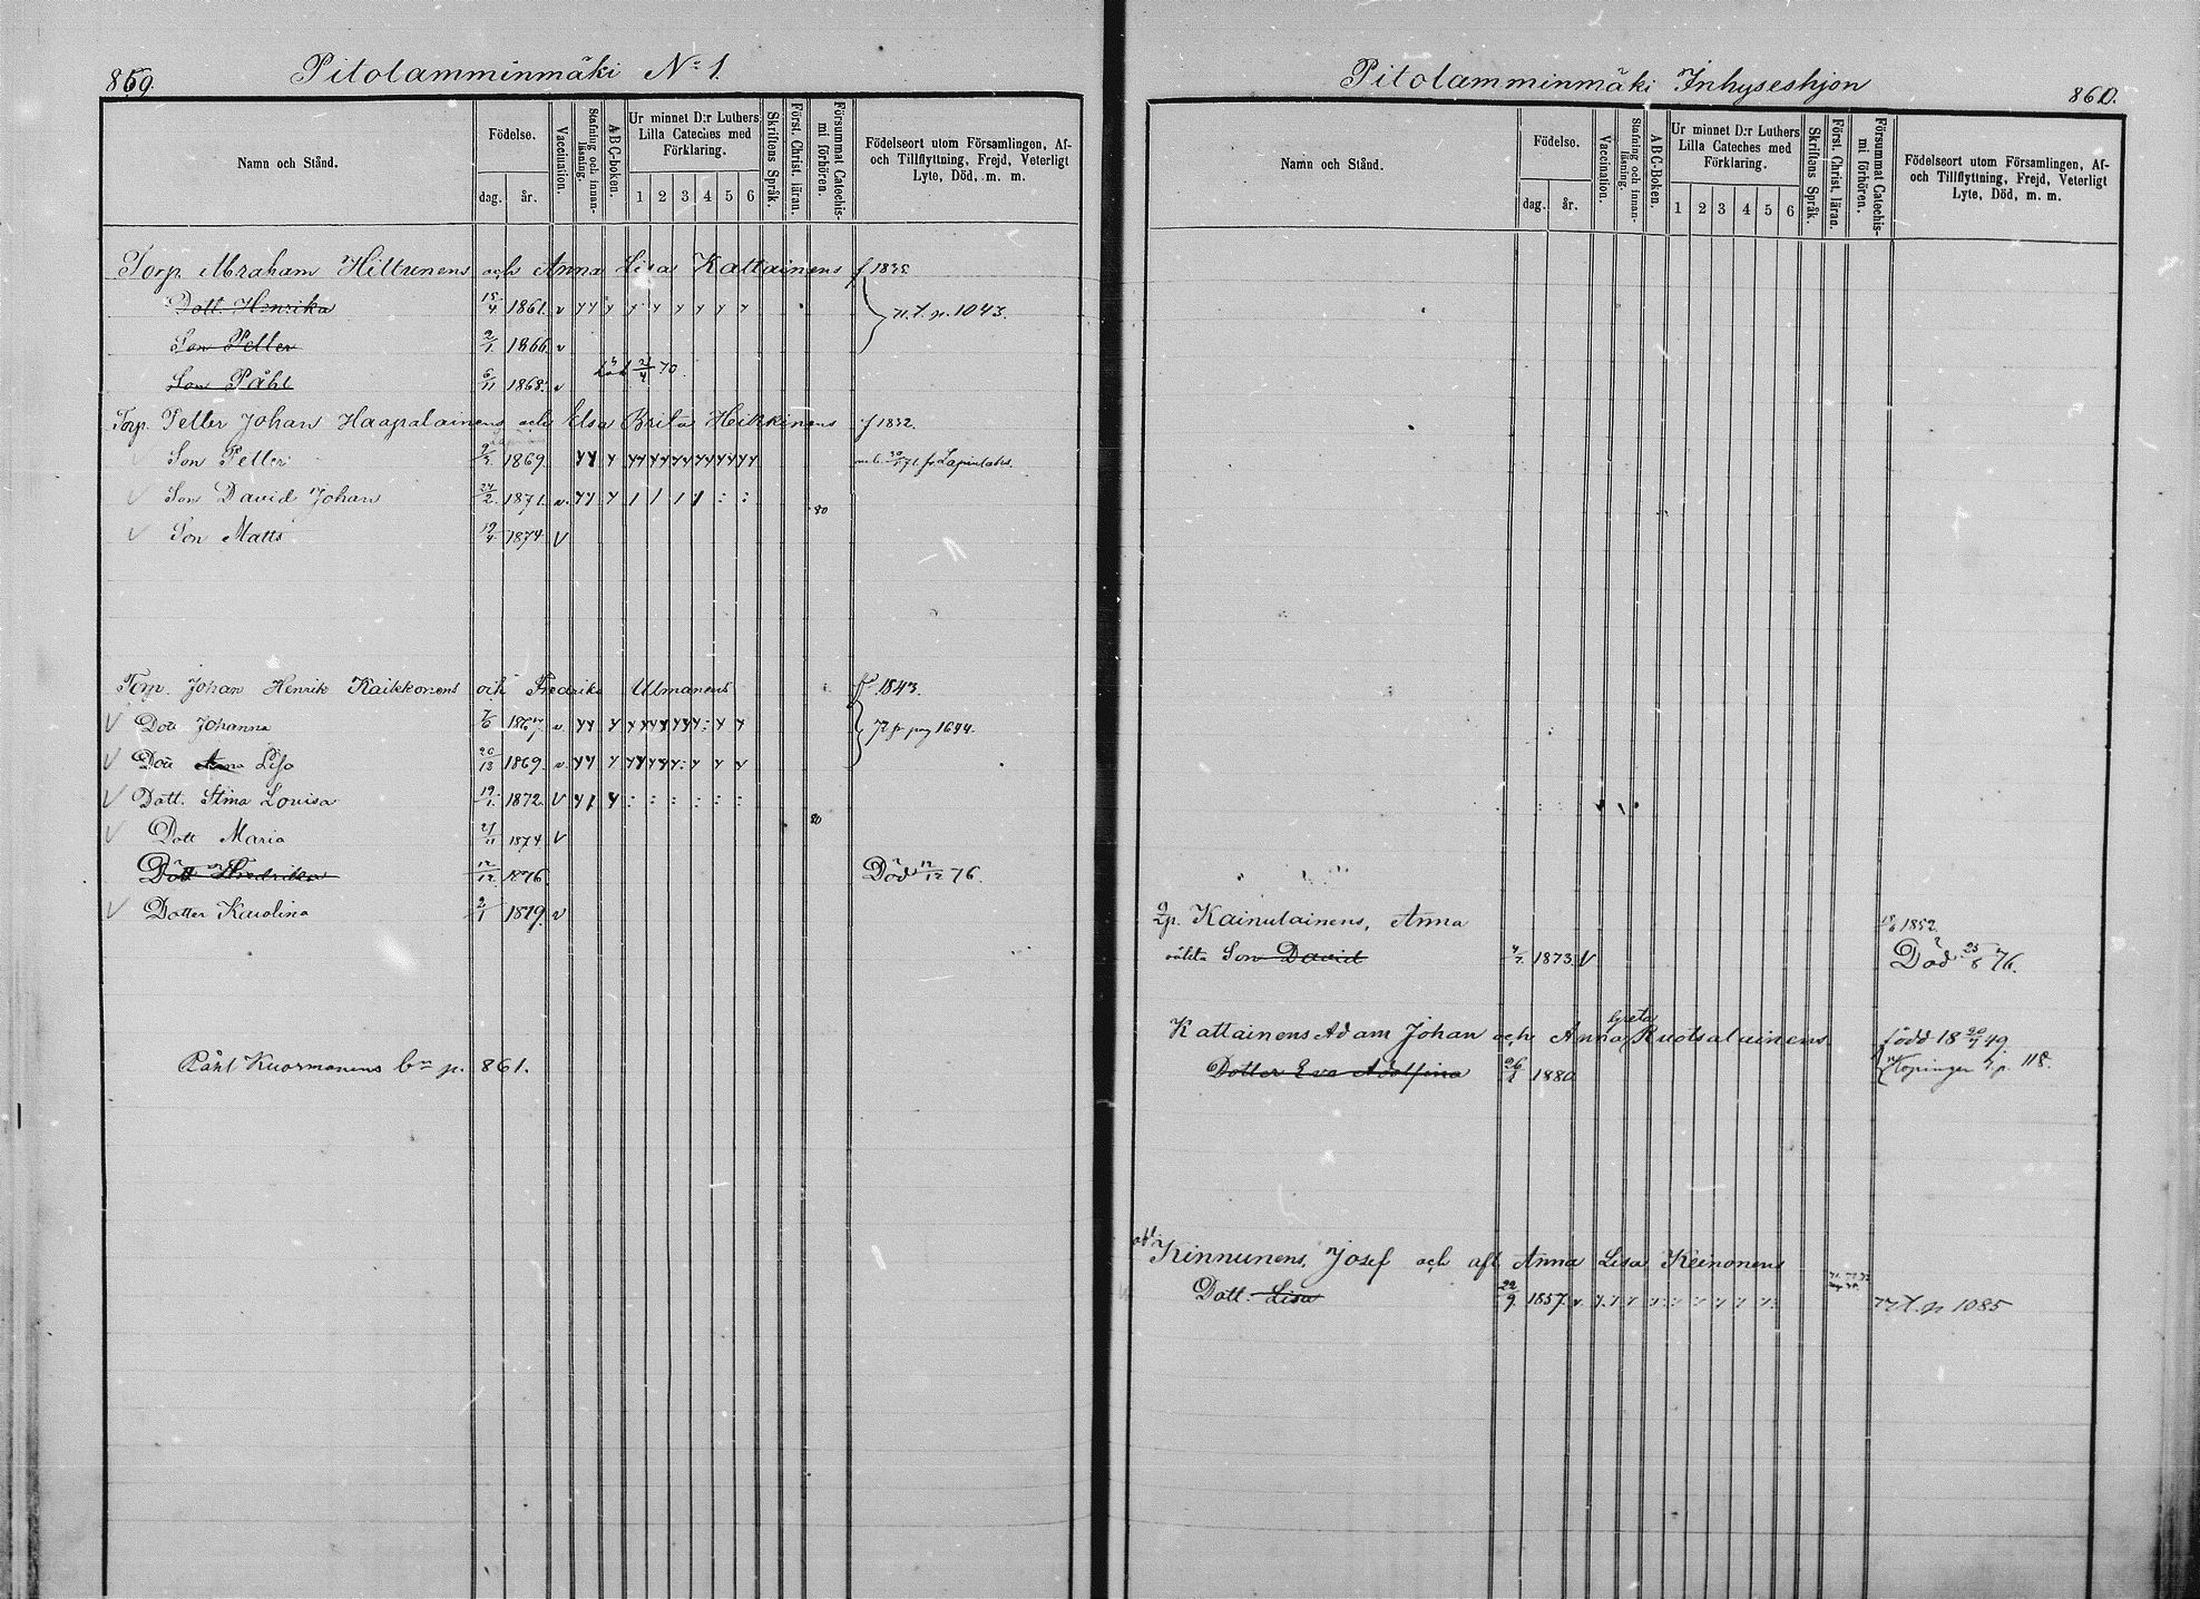 859.
Pitolamminmäki No 1.
Namn och Stånd.
Födelse.
dag. år.
Vaccination.
Stafning och innanläsning.
ABC-boken.
Ur minnet D:r Luthers Lilla Cateches med Förklaring.
1 2 3 4 5 6
Skriftens Språk.
Först. Christ. läran.
Försummat Catechismi förhören.
Födelseort utom Församlingen, Af- och Tillflyttning, Frejd, Veterligt Lyte, Död, m. m.
Torp. Abraham Hiltunens och Anna Lisa Kattainens f 1838
Dott. Henrika 15/4 1861. v n. t. p. 1043.
Son Petter 2/1 1866. v
Son Påhl 6/11 1868. v död 21/4 70.
Torp. Petter Johan Haapalainens och Elsa Brita Heikkinens f 1832.
Son Petter 1869. 71. fr Lapinlaks.
Son David Johan 24/2. 1871. v. 80
Son Matts 19/4 1874 V
Torp. Johan Henrik Kaikkonens och Fredrika Ulmanens f. 1843.
V Dott Johanna 7/6 1867. v. 72 fr pag 1644.
V Dott Anna Lisa 1869. v.
V Dott. Stina Lovisa 19/1. 1872. V
V Dott Maria 21/11 1874 V 80
Dott Fredrika 12/12 1876. Död 12/12 76.
V Dotter Karolina 2/1 1879. v
Påhl Kuormanens bn p. 861.
Pitolamminmäki Inhyseshjon
860.
Namn och Stånd.
Födelse.
dag. år.
Vaccination.
Stafning och innanläsning.
ABC-Boken.
Ur minnet D:r Luthers Lilla Cateches med Förklaring.
1 2 3 4 5 6
Skriftens Språk.
Först. Christ. läran.
Försummat Catechismi förhören.
Födelseort utom Församlingen, Af- och Tillflyttning, Frejd, Veterligt Lyte, Död, m. m.
Qp. Kainulainens, Anna 1852.
oäkta Son David 4/7. 1873. V Död 25/8 76.
Kattainens Adam Johan och Anna Greta Ruotsalainens född 18 20/7 49.
Dotter Eva Adolfina 26/1 1880 Kopingen p. 118.
Kinnunens, Josef och afl Anna Lisa Keinonens
Dott. Lisa 22/9. 1857. v. n. t. p 1085